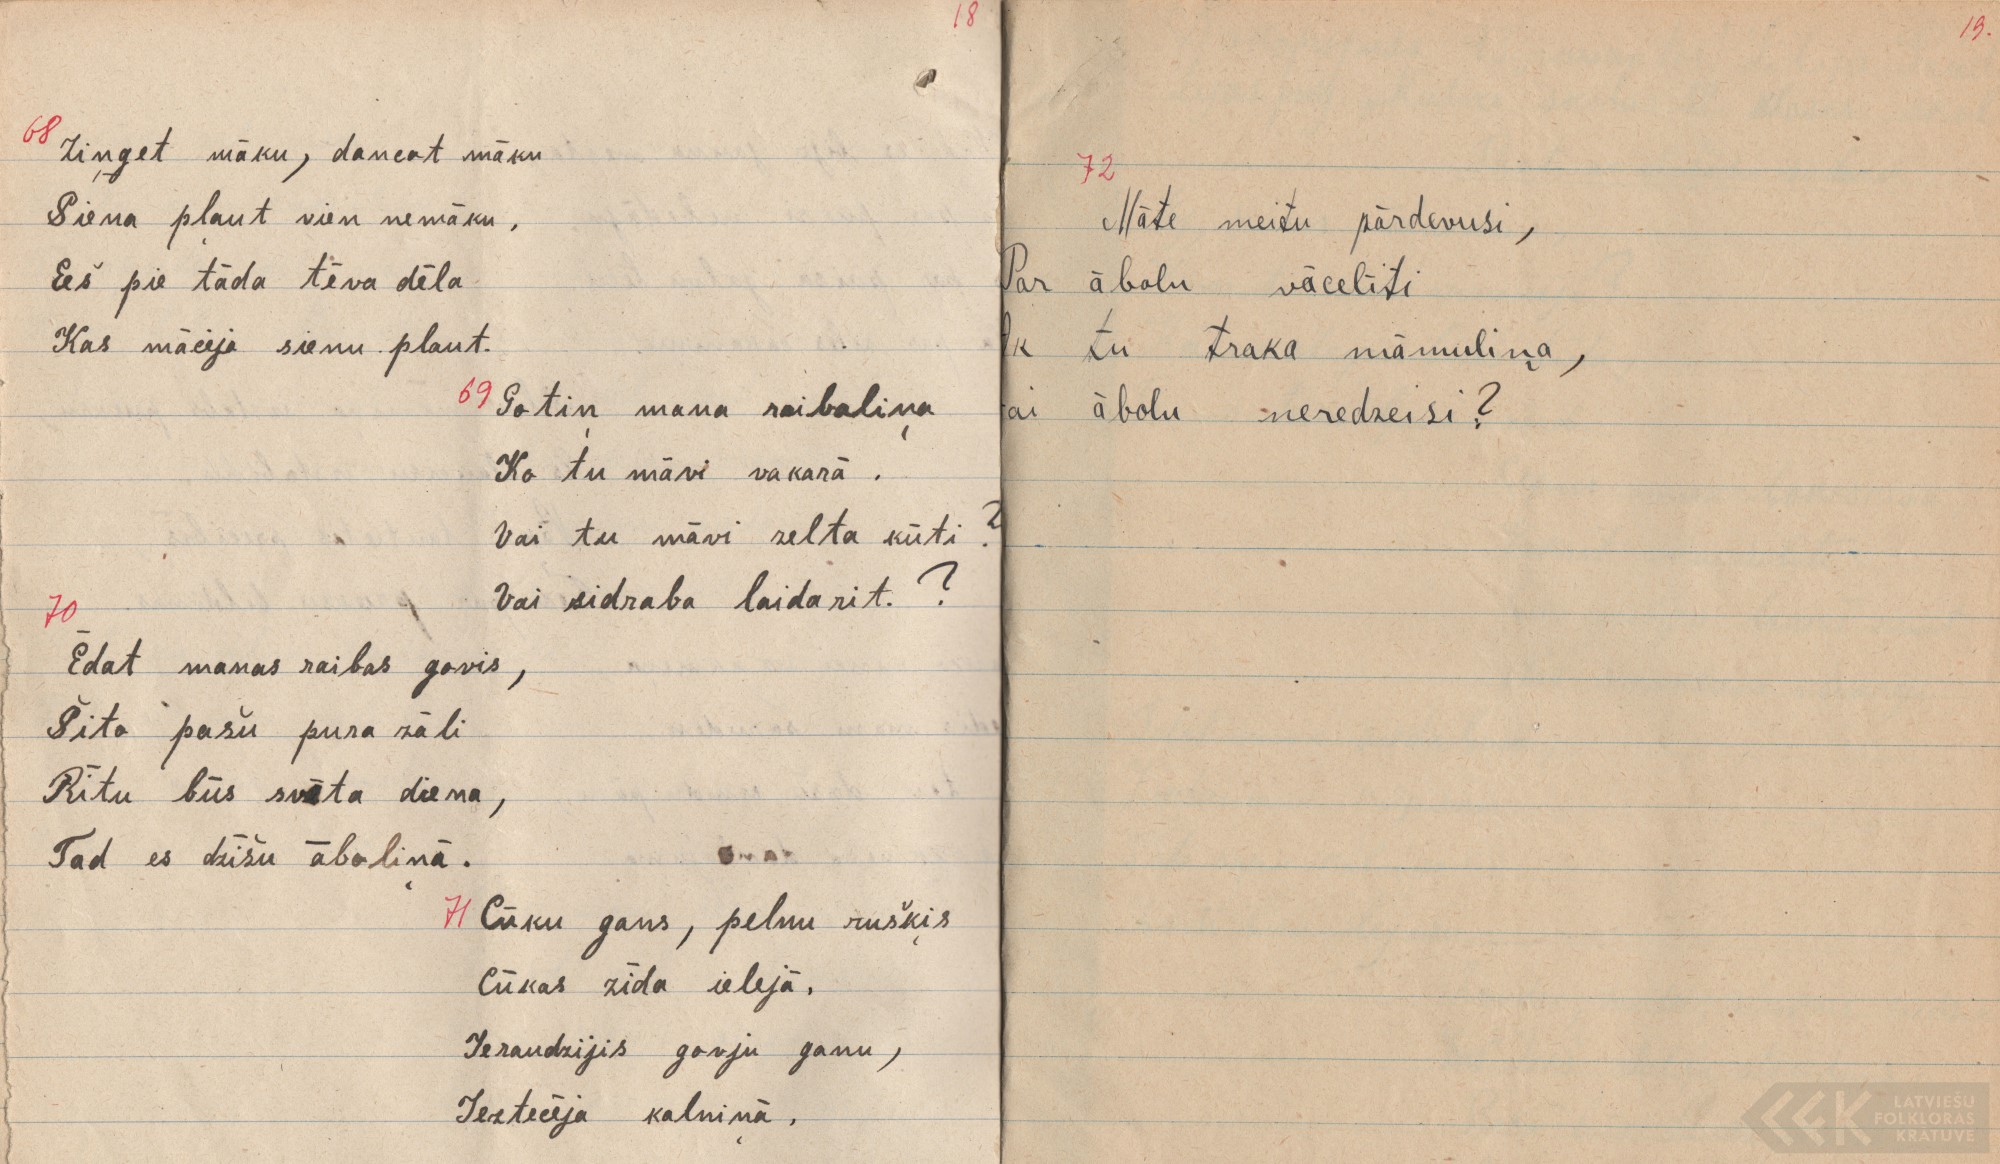 18
68 Ziņģet māku, dancot māku
Siena pļaut vien nemāku,
Eeš pie tāda tēva dēla
Kas mācēja sienu plaut.
69 Gotiņ mana raibaliņa
Ko tu māvi vakarā.
Vai tu māvi zelta kūti?
Vai sidraba laidarit.?
70
Ēdat manas raibas govis,
Šito pašu pura zāli
Rītu būs svēta diena,
Tad es dzīšu āboliņā.
71 Cūku gans, pelnu rušķis
Cūkas zīda ielejā,
Ieraudzijis govju ganu,
Ieztecēja kalniņā.
19.
72
Māte meitu pārdevusi,
Par ābolu vācelīti
Ak tu traka māmuliņa,
ai ābolu neredzeisi?
LATVIEŠU
FOLKLORAS
KRĀTUVE